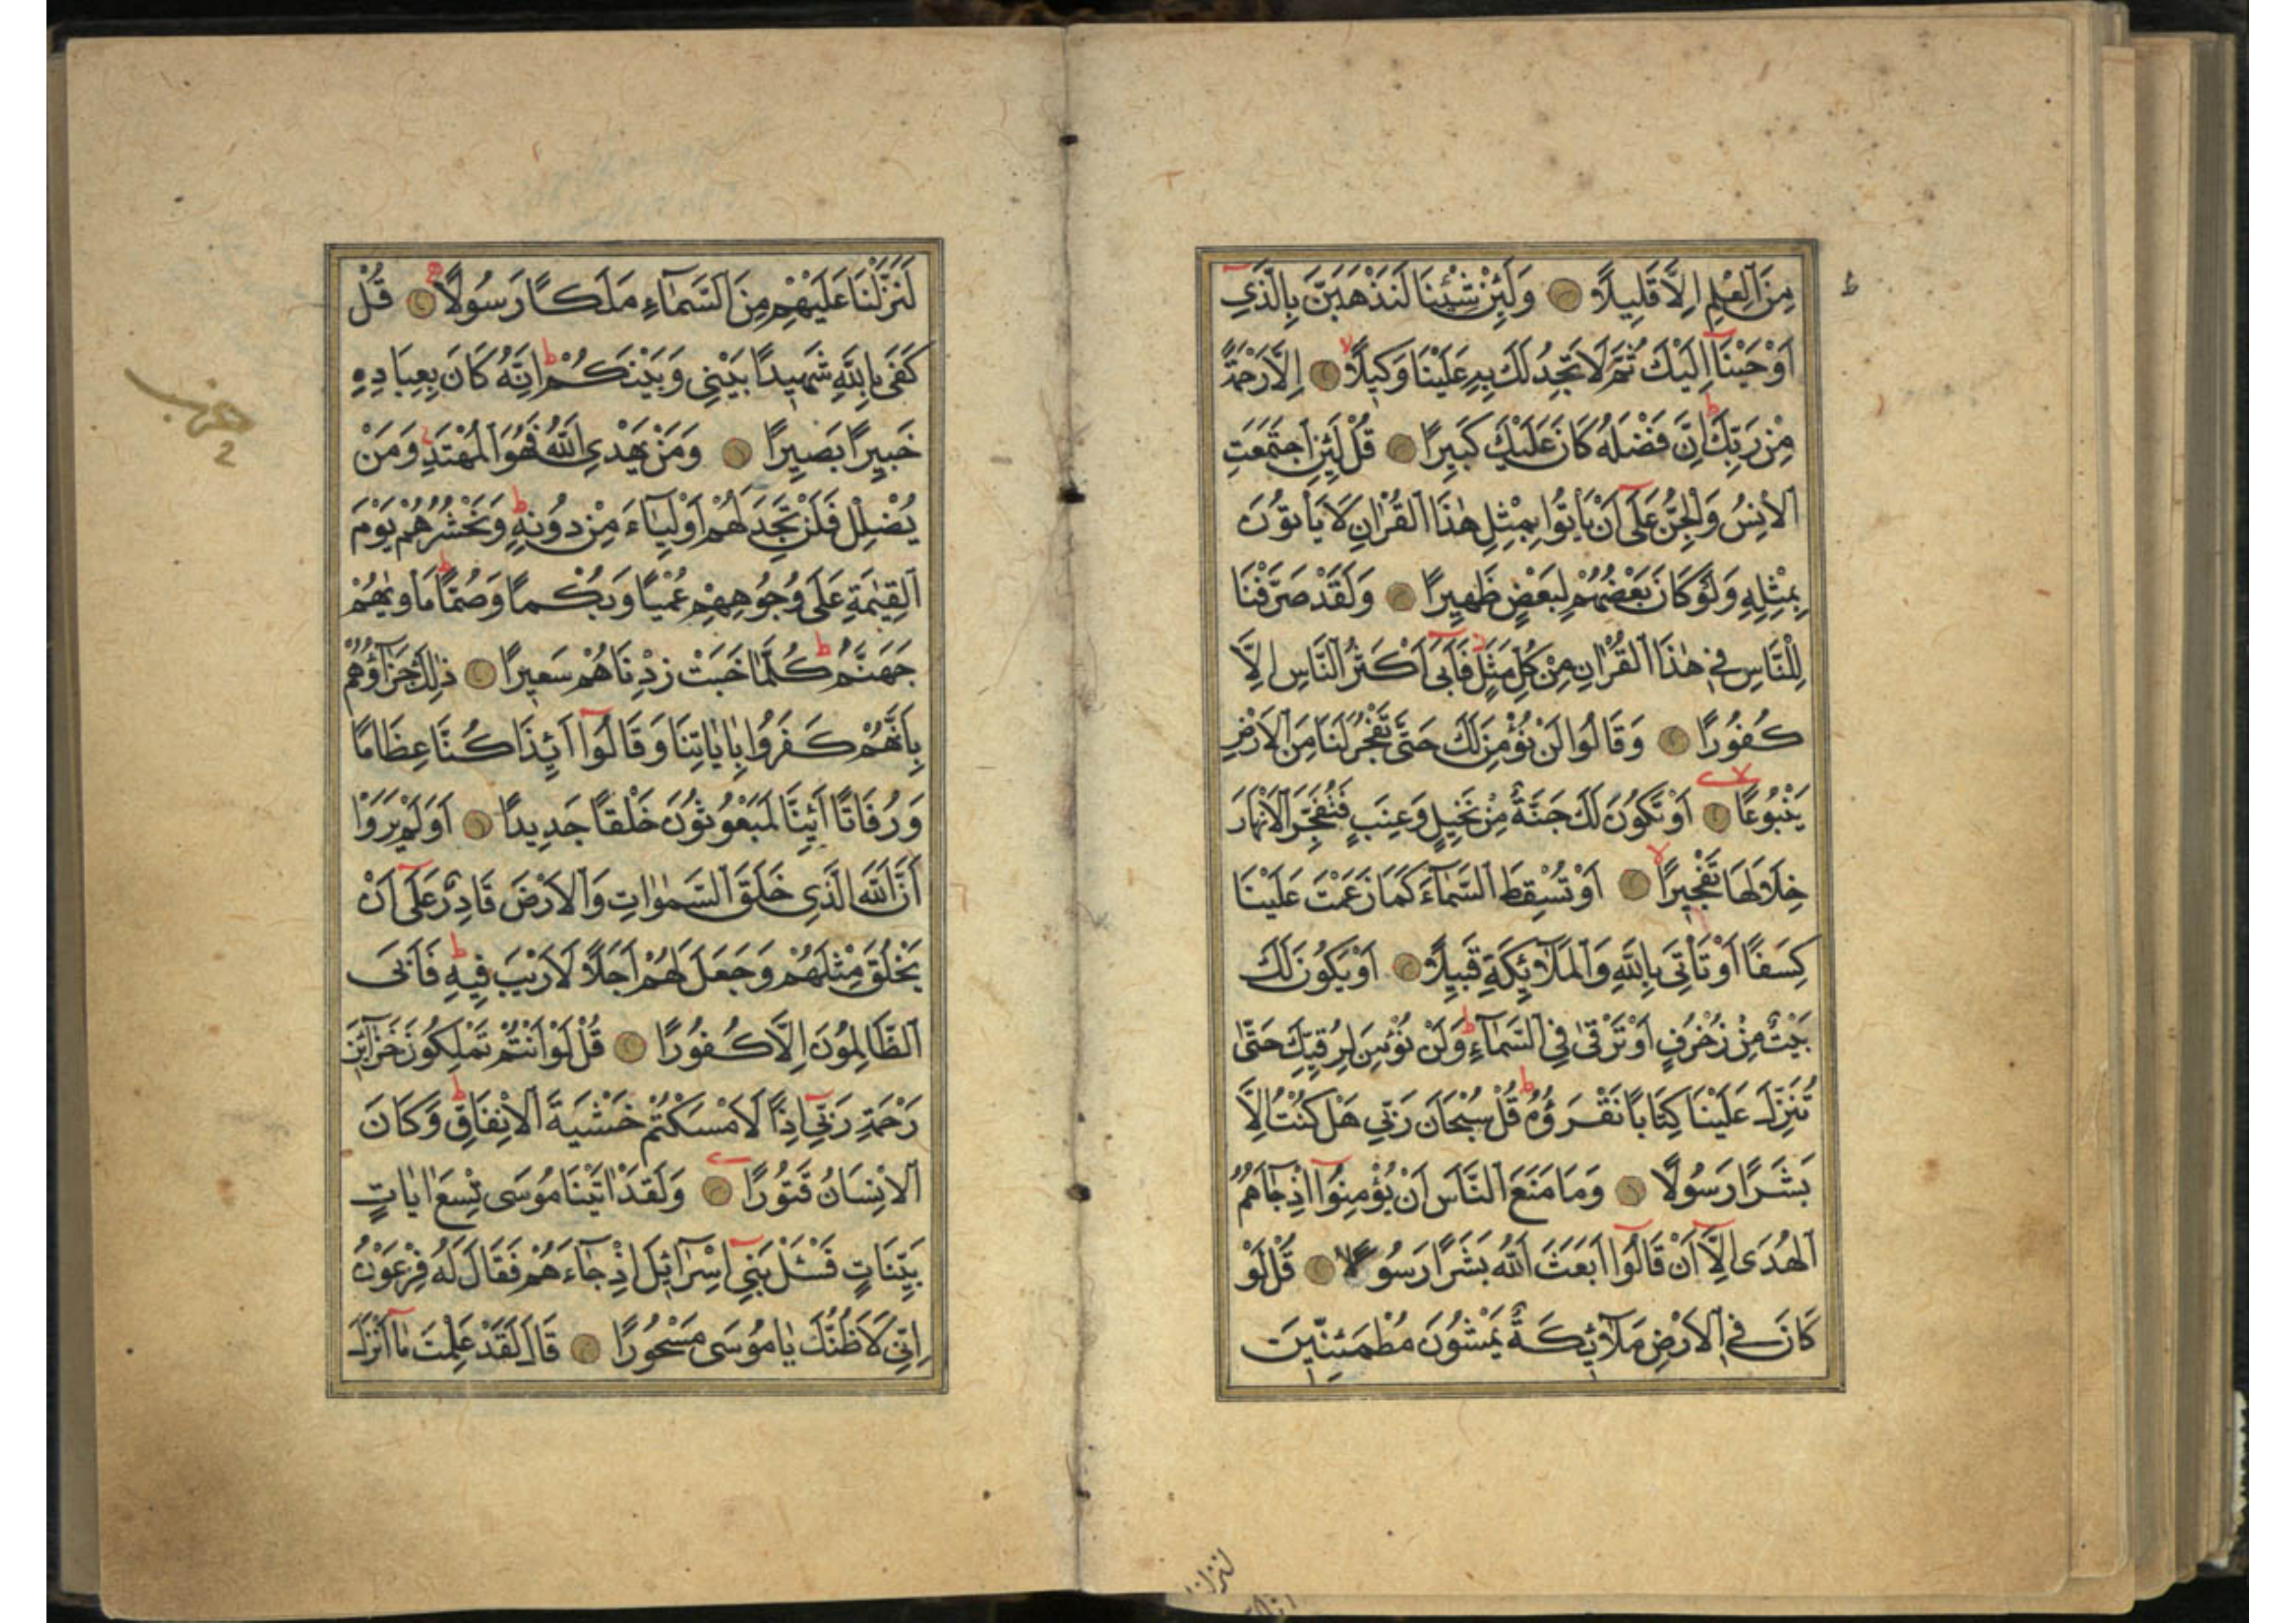 مِنَ الْعِلْمِ اِلَّا قَلِيلًا وَلَئِنْ شِئْنَا لَنَذْهَبَنَّ بِالَّذِي
اَوْحَيْنَا اِلَيْكَ ثُمَّ لَا تَجِدُ لَكَ بِهِ عَلَيْنَا وَكِيلًا اِلَّا رَحْمَةً
مِنْ رَبِّكَ اِنَّ فَضْلَهُ كَانَ عَلَيْكَ كَبِيرًا قُلْ لَئِنِ اجْتَمَعَتِ
الْاِنْسُ وَالْجِنُّ عَلَى اَنْ يَأْتُوا بِمِثْلِ هٰذَا الْقُرْاٰنِ لَا يَأْتُونَ
بِمِثْلِهِ وَلَوْ كَانَ بَعْضُهُمْ لِبَعْضٍ ظَهِيرًا وَلَقَدْ صَرَّفْنَا
لِلنَّاسِ فِي هٰذَا الْقُرْاٰنِ مِنْ كُلِّ مَثَلٍ فَاَبَى اَكْثَرُ النَّاسِ اِلَّا
كُفُورًا وَقَالُوا لَنْ نُؤْمِنَ لَكَ حَتَّى تَفْجُرَ لَنَا مِنَ الْاَرْضِ
يَنْبُوعًا اَوْ تَكُونَ لَكَ جَنَّةٌ مِنْ نَخِيلٍ وَعِنَبٍ فَتُفَجِّرَ الْاَنْهَارَ
خِلَالَهَا تَفْجِيرًا اَوْ تُسْقِطَ السَّمَاءَ كَمَا زَعَمْتَ عَلَيْنَا
كِسَفًا اَوْ تَأْتِيَ بِاللّٰهِ وَالْمَلَائِكَةِ قَبِيلًا اَوْ يَكُونَ لَكَ
بَيْتٌ مِنْ زُخْرُفٍ اَوْ تَرْقٰى فِي السَّمَاءِ وَلَنْ نُؤْمِنَ لِرُقِيِّكَ حَتّٰى
تُنَزِّلَ عَلَيْنَا كِتَابًا نَقْرَؤُهُ قُلْ سُبْحَانَ رَبِّي هَلْ كُنْتُ اِلَّا
بَشَرًا رَسُولًا وَمَا مَنَعَ النَّاسَ اَنْ يُؤْمِنُوا اِذْ جَاءَهُمُ
الْهُدَى اِلَّا اَنْ قَالُوا اَبَعَثَ اللّٰهُ بَشَرًا رَسُولًا قُلْ لَوْ
كَانَ فِي الْاَرْضِ مَلَائِكَةٌ يَمْشُونَ مُطْمَئِنِّينَ
لَنَزَّلْنَا عَلَيْهِمْ مِنَ السَّمَاءِ مَلَكًا رَسُولًا قُلْ
كَفَى بِاللّٰهِ شَهِيدًا بَيْنِي وَبَيْنَكُمْ اِنَّهُ كَانَ بِعِبَادِهِ
خَبِيرًا بَصِيرًا وَمَنْ يَهْدِي اللّٰهُ فَهُوَ الْمُهْتَدِ وَمَنْ
يُضْلِلْ فَلَنْ تَجِدَ لَهُمْ اَوْلِيَاءَ مِنْ دُونِهِ وَنَحْشُرُهُمْ يَوْمَ
الْقِيٰمَةِ عَلَى وُجُوهِهِمْ عُمْيًا وَبُكْمًا وَصُمًّا مَأْوٰيهُمْ
جَهَنَّمُ كُلَّمَا خَبَتْ زِدْنَاهُمْ سَعِيرًا ذٰلِكَ جَزَاؤُهُمْ
بِاَنَّهُمْ كَفَرُوا بِاٰيَاتِنَا وَقَالُوا اَئِذَا كُنَّا عِظَامًا
وَرُفَاتًا اَئِنَّا لَمَبْعُوثُونَ خَلْقًا جَدِيدًا اَوَلَمْ يَرَوْا
اَنَّ اللّٰهَ الَّذِي خَلَقَ السَّمٰوَاتِ وَالْاَرْضَ قَادِرٌ عَلَى اَنْ
يَخْلُقَ مِثْلَهُمْ وَجَعَلَ لَهُمْ اَجَلًا لَا رَيْبَ فِيهِ فَاَبَى
الظَّالِمُونَ اِلَّا كُفُورًا قُلْ لَوْ اَنْتُمْ تَمْلِكُونَ خَزَائِنَ
رَحْمَةِ رَبِّي اِذًا لَاَمْسَكْتُمْ خَشْيَةَ الْاِنْفَاقِ وَكَانَ
الْاِنْسَانُ قَتُورًا وَلَقَدْ اٰتَيْنَا مُوسَى تِسْعَ اٰيَاتٍ
بَيِّنَاتٍ فَسْئَلْ بَنِي اِسْرَائِلَ اِذْ جَاءَهُمْ فَقَالَ لَهُ فِرْعَوْنُ
اِنِّي لَاَظُنُّكَ يَا مُوسَى مَسْحُورًا قَالَ لَقَدْ عَلِمْتَ مَا اَنْزَلَ
حزب
2
لنزلنا